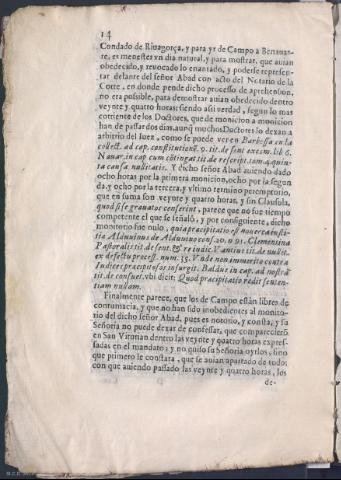 14
Condado de Riuagorça, y para yr de Campo a Benauar-
re, es menester vn dia natural, y para mostrar, que auian
obedecido, y reuocado lo enantado, y poderse represen-
tar delante del señor Abad con acto del Notario de la
Corte, en donde pende dicho processo de aprehension,
no era possible, para demostrar auian obedecido dentro
veynte y quatro horas: siendo assi verdad, segun lo mas
corriente de los Doctores, que de monicion a monicion
han de passar dos dias, aunq muchos Doctores lo dexan a
arbitrio del Iuez, como se puede ver en Barbosa en la
collect. ad cap. constitutionē. 9. tit. de sent excom. lib. 6.
Nauar. in cap cum cōtingat tit de rescript. tom 4. quin-
ta causa nullitatis. Y dicho señor Abad auiendo dado
ocho horas por la primera monicion, ocho por la segun
da, y ocho por la tercera, y vltimo termino peremptorio,
que en suma son veynte y quatro horas, y sin Clausula,
quod si se grauator censerint, parece que no fue tiempo
competente el que se señalò, y por consiguiente, dicho
monitorio fue nulo, quia præcipitatio est nouerca iusti-
tia Alduuinus de Alduuino cons. 20. n 91. Clementina
Pastoralis tit de sent. & re iudic. Vantius tit. de nullit.
ex defectu process. num. 15. Vnde non immerito contra
Iudicē præcipitosor insurgit. Baldus in cap. ad nostrā
tit. de consuet. vbi dicit: Quod præcipitatio reddit senten-
tiam nullam.
Finalmente parece, que los de Campo están libres de
contumacia, y que no han sido inobedientes al monito-
rio del dicho señor Abad, pues es notorio, y consta, y su
Señoria no puede dexar de confessar, que comparecierō
en San Vitorian dentro las veynte y quatro horas expres-
sadas en el mandato; y no quiso su Señoria oyrlos, sino
que primero le constara, que se auian apartado de todo;
con que auiendo passado las veynte y quatro horas, los
de-